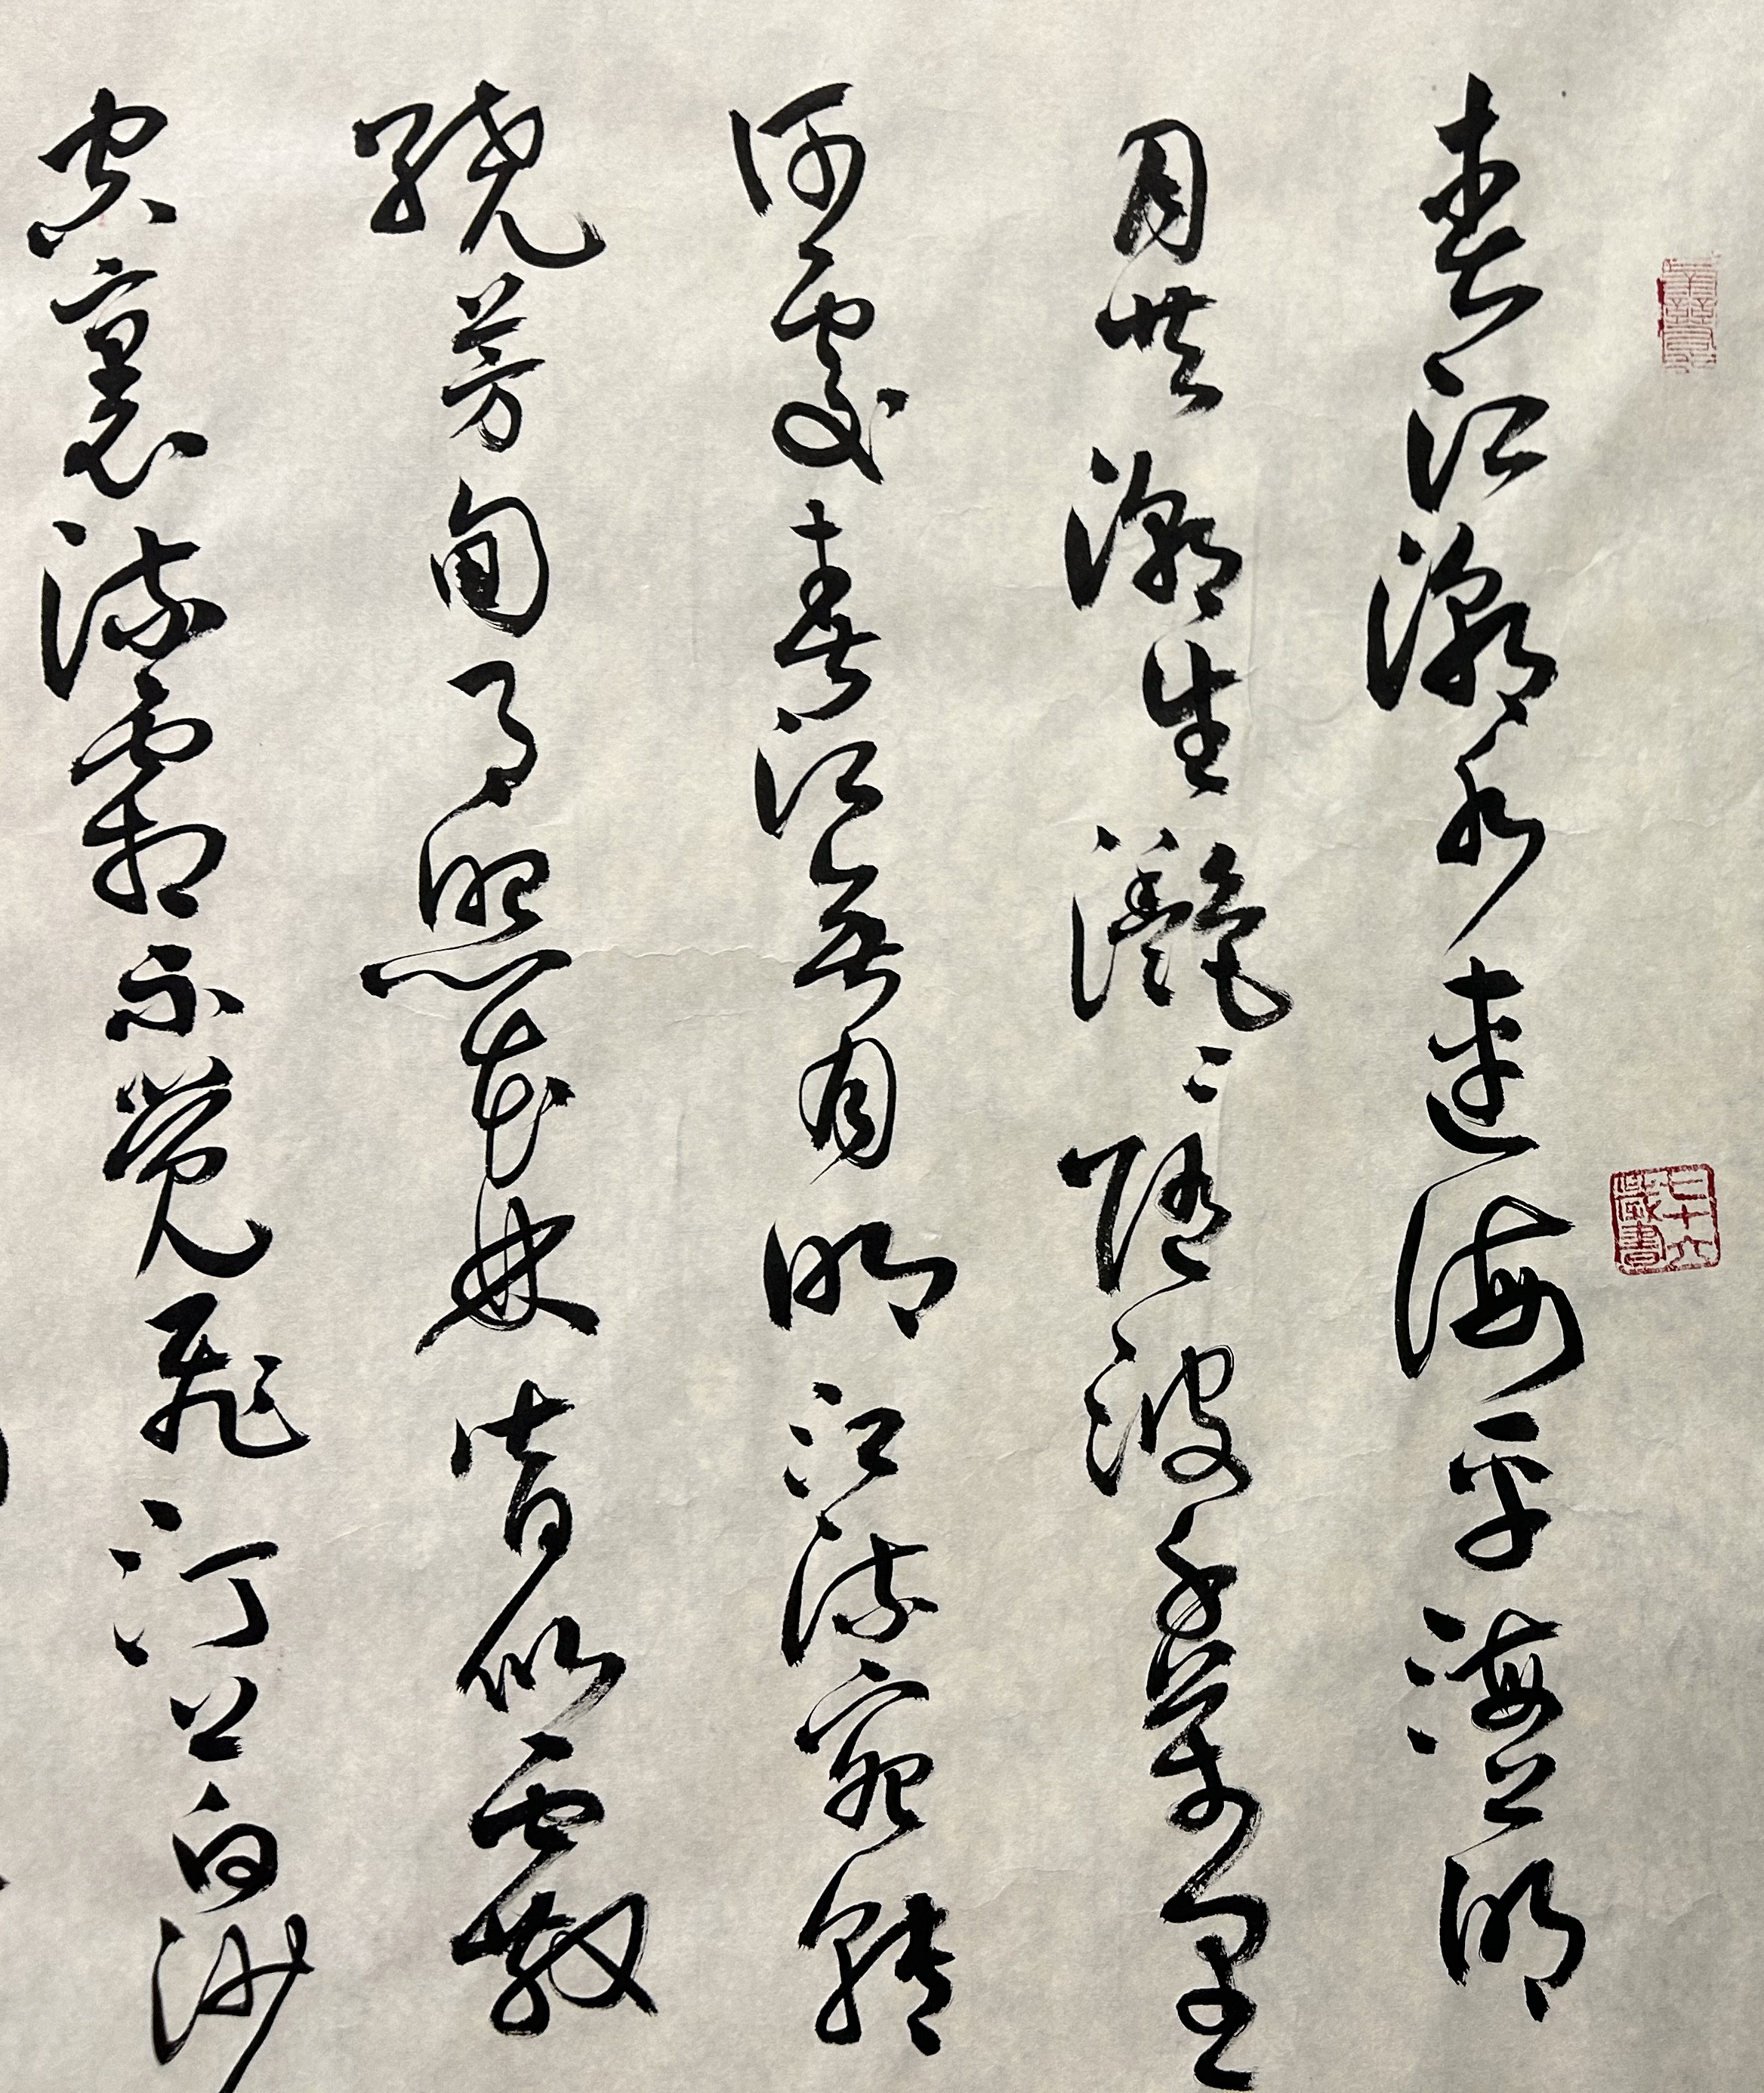 春江潮水連海平海上明
月共潮生灩〻隨波千萬里
何處春江無月明江流宛轉
繞芳甸月照花林皆似霰
空裏流霜不覺飛汀上白沙